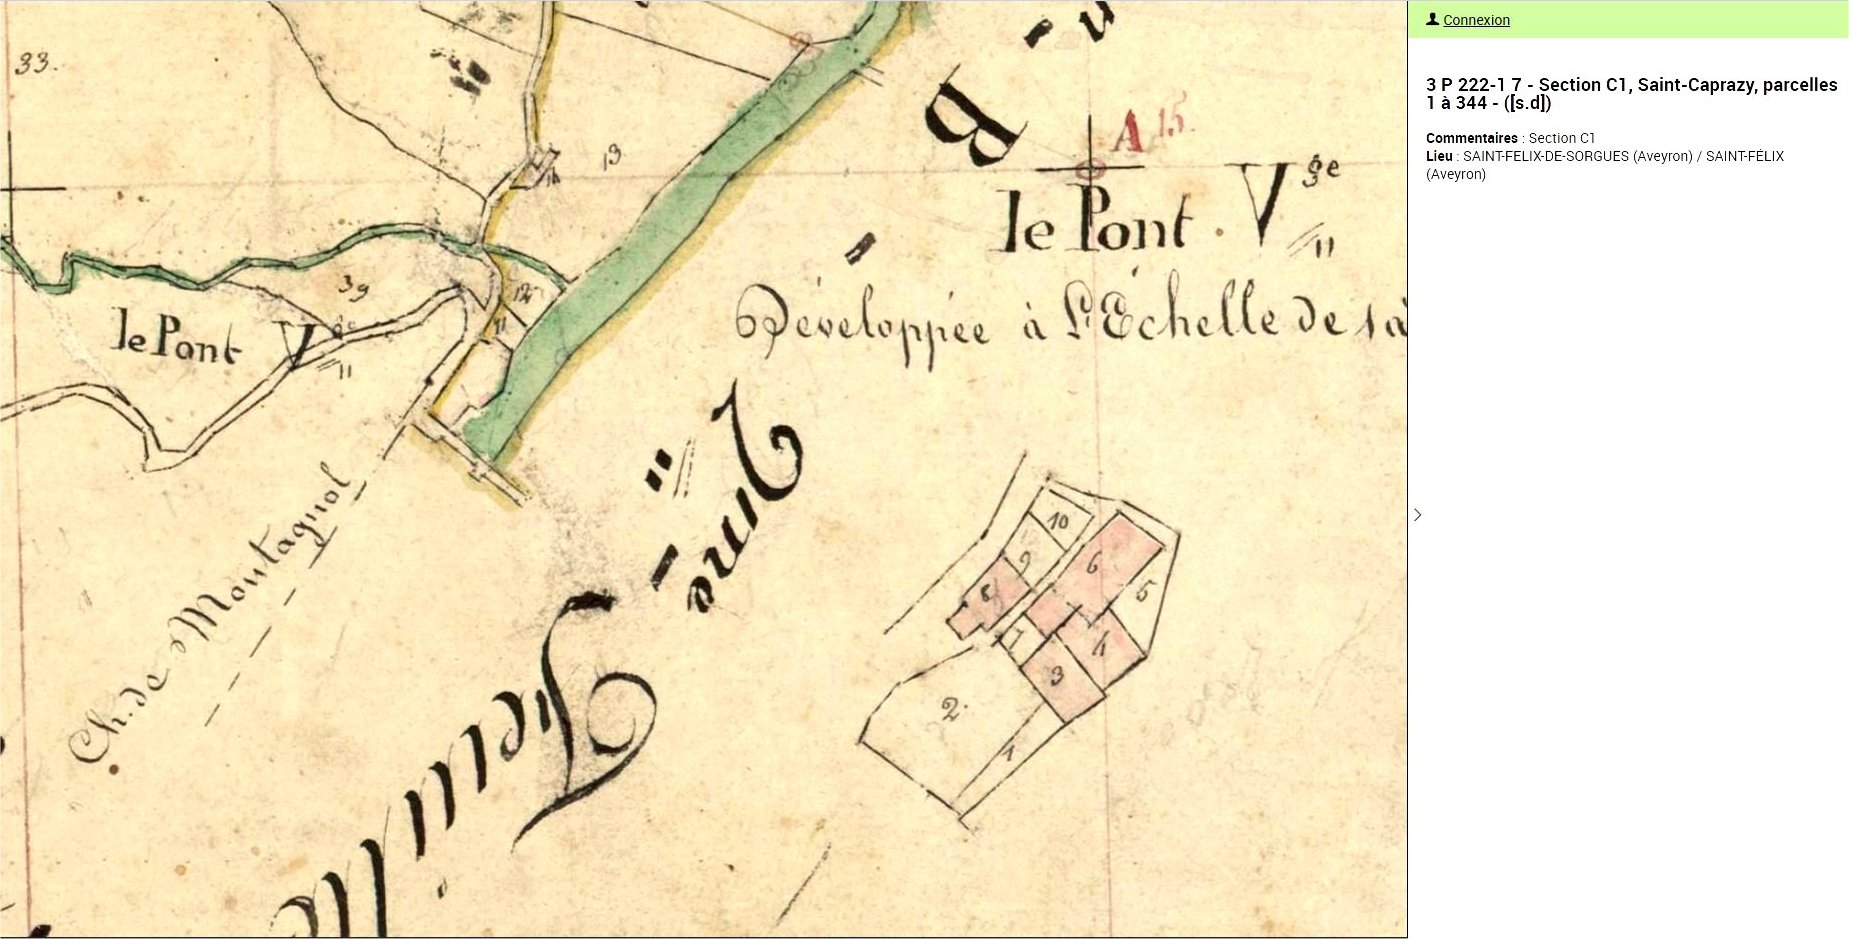 33.
13
14
A 15.
le Pont. V.ge
39
12
11
le Pont V.ge
Développée à L'Échelle de 1 à
B
Ch. de Montagnol
Feuille
10
9
6
8
5
7
4
3
2
1
Connexion
3 P 222-1 7 - Section C1, Saint-Caprazy, parcelles
1 à 344 - ([s.d])
Commentaires : Section C1
Lieu : SAINT-FELIX-DE-SORGUES (Aveyron) / SAINT-FÉLIX
(Aveyron)